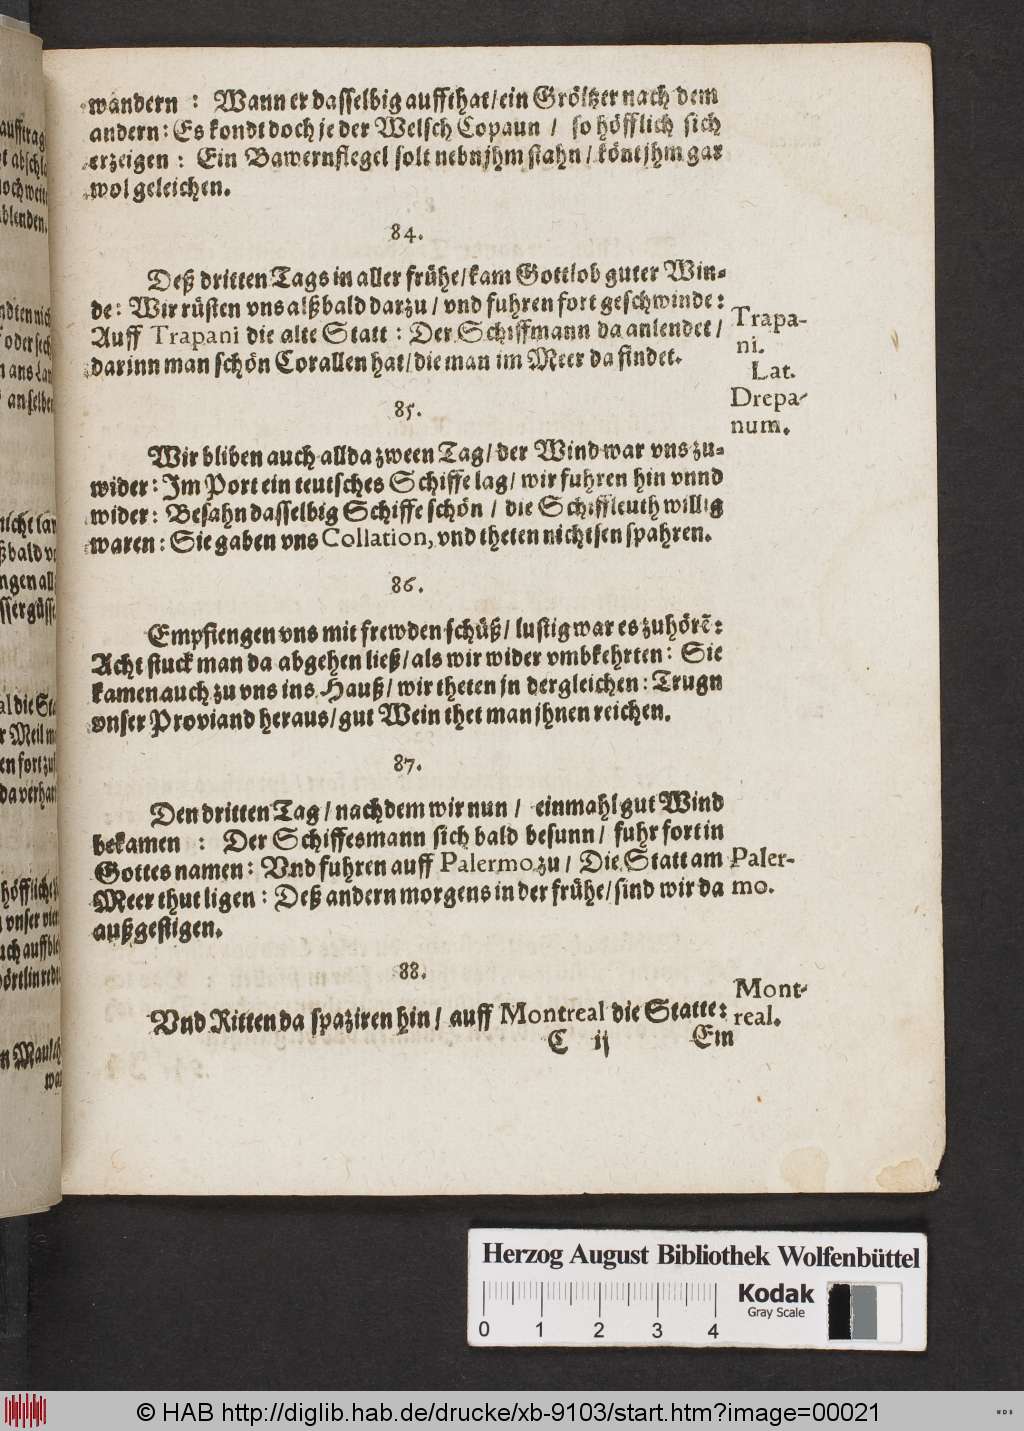 wandern : Wann er dasselbig auffthat/ ein Gröltzer nach dem
andern: Es kondt doch je der Welsch Copaun / so höfflich sich
erzeigen : Ein Bawernflegel solt nebn jhm stahn / könt jhm gar
wol geleichen.
84.
Deß dritten Tags in aller frühe/ kam Gottlob guter Win-
de: Wir rüsten vns alßbald darzu / vnd fuhren fort geschwinde:
Auff Trapani die alte Statt : Der Schiffmann da anlendet /
darinn man schön Corallen hat/ die man im Meer da findet.
Trapa-
ni.
Lat.
Drepa-
num.
85.
Wir bliben auch allda zween Tag/ der Wind war vns zu-
wider: Im Port ein teutsches Schiffe lag/ wir fuhren hin vnnd
wider: Besahn dasselbig Schiffe schön / die Schiffleuth willig
waren: Sie gaben vns Collation, vnd theten nichtsen spahren.
86.
Empfiengen vns mit frewden schüß/ lustig war es zuhörẽ:
Acht stuck man da abgehen ließ/ als wir wider vmbkehrten: Sie
kamen auch zu vns ins Hauß/ wir theten jn dergleichen: Trugn
vnser Proviand heraus/ gut Wein thet man jhnen reichen.
87.
Den dritten Tag / nach dem wir nun / einmahl gut Wind
bekamen : Der Schiffesmann sich bald besunn/ fuhr fort in
Gottes namen: Vnd fuhren auff Palermo zu/ Die Statt am
Meer thut ligen : Deß andern morgens in der frühe/ sind wir da
außgestigen.
Paler-
mo.
88.
Vnd Ritten da spaziren hin/ auff Montreal die Statte:
Mont-
real.
C ij
Ein
Herzog August Bibliothek Wolfenbüttel
0 1 2 3 4
Kodak
Gray Scale
© HAB http://diglib.hab.de/drucke/xb-9103/start.htm?image=00021